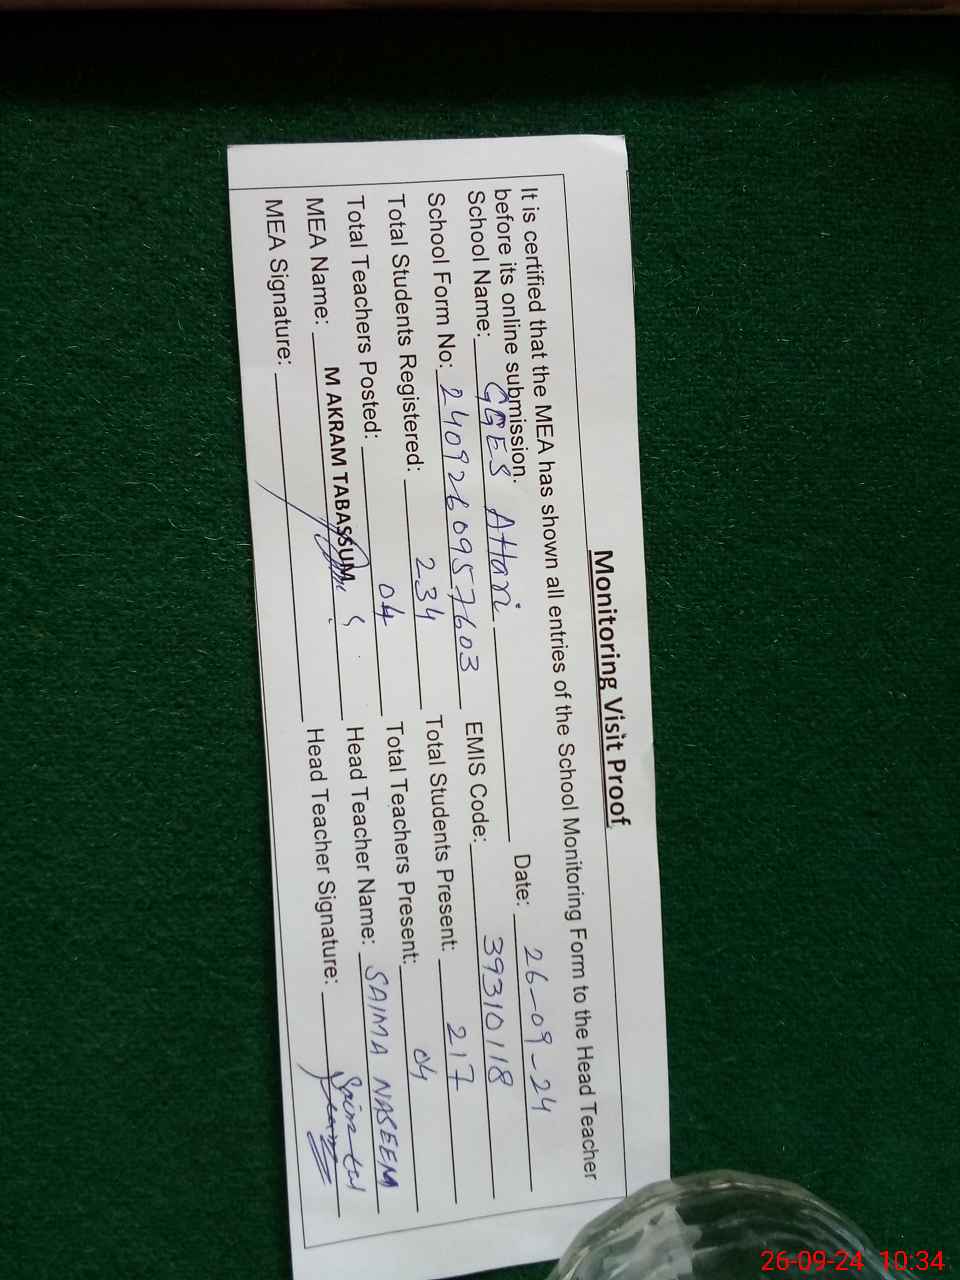 Monitoring Visit Proof
It is certified that the MEA has shown all entries of the School Monitoring Form to the Head Teacher
before its online submission. Date: 26-09-24
School Name: GGES Attari
School Form No: 2409260957603 EMIS Code: 39310118
Total Students Registered: 234 Total Students Present: 217
Total Teachers Posted: 04 Total Teachers Present: 04
MEA Name: M AKRAM TABASSUM Head Teacher Name: SAIMA NASEEM
MEA Signature: Head Teacher Signature:
26-09-24 10:34